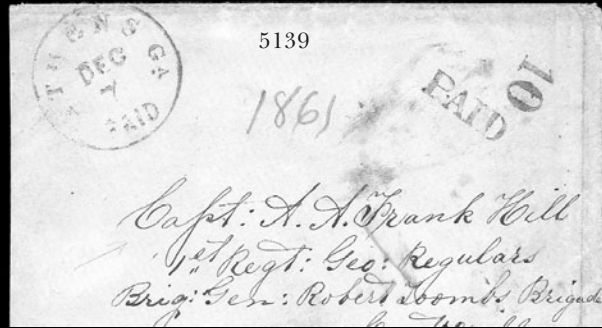 5139
ATHENS GA.
DEC
7
PAID
PAID
10
1861
Capt: A. A. Frank Hill
1st Regt: Geo: Regulars
Brig: Gen: Robert Toombs Brigade